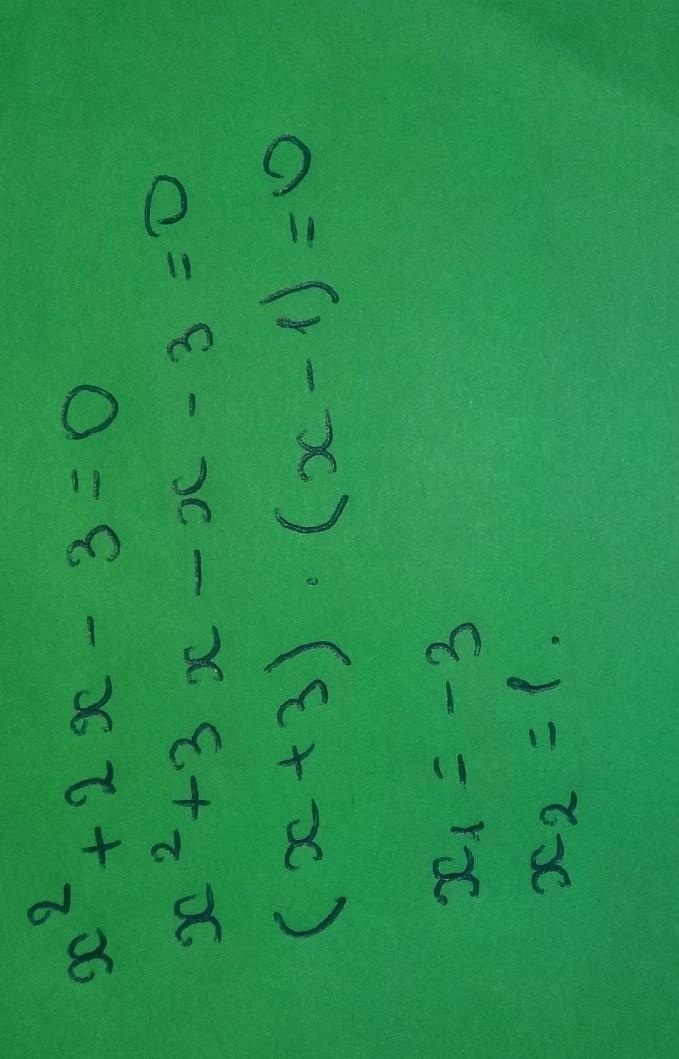 x² + 2x - 3 = 0
x² + 3x - x - 3 = 0
(x + 3) · (x - 1) = 0
x₁ = -3
x₂ = 1.